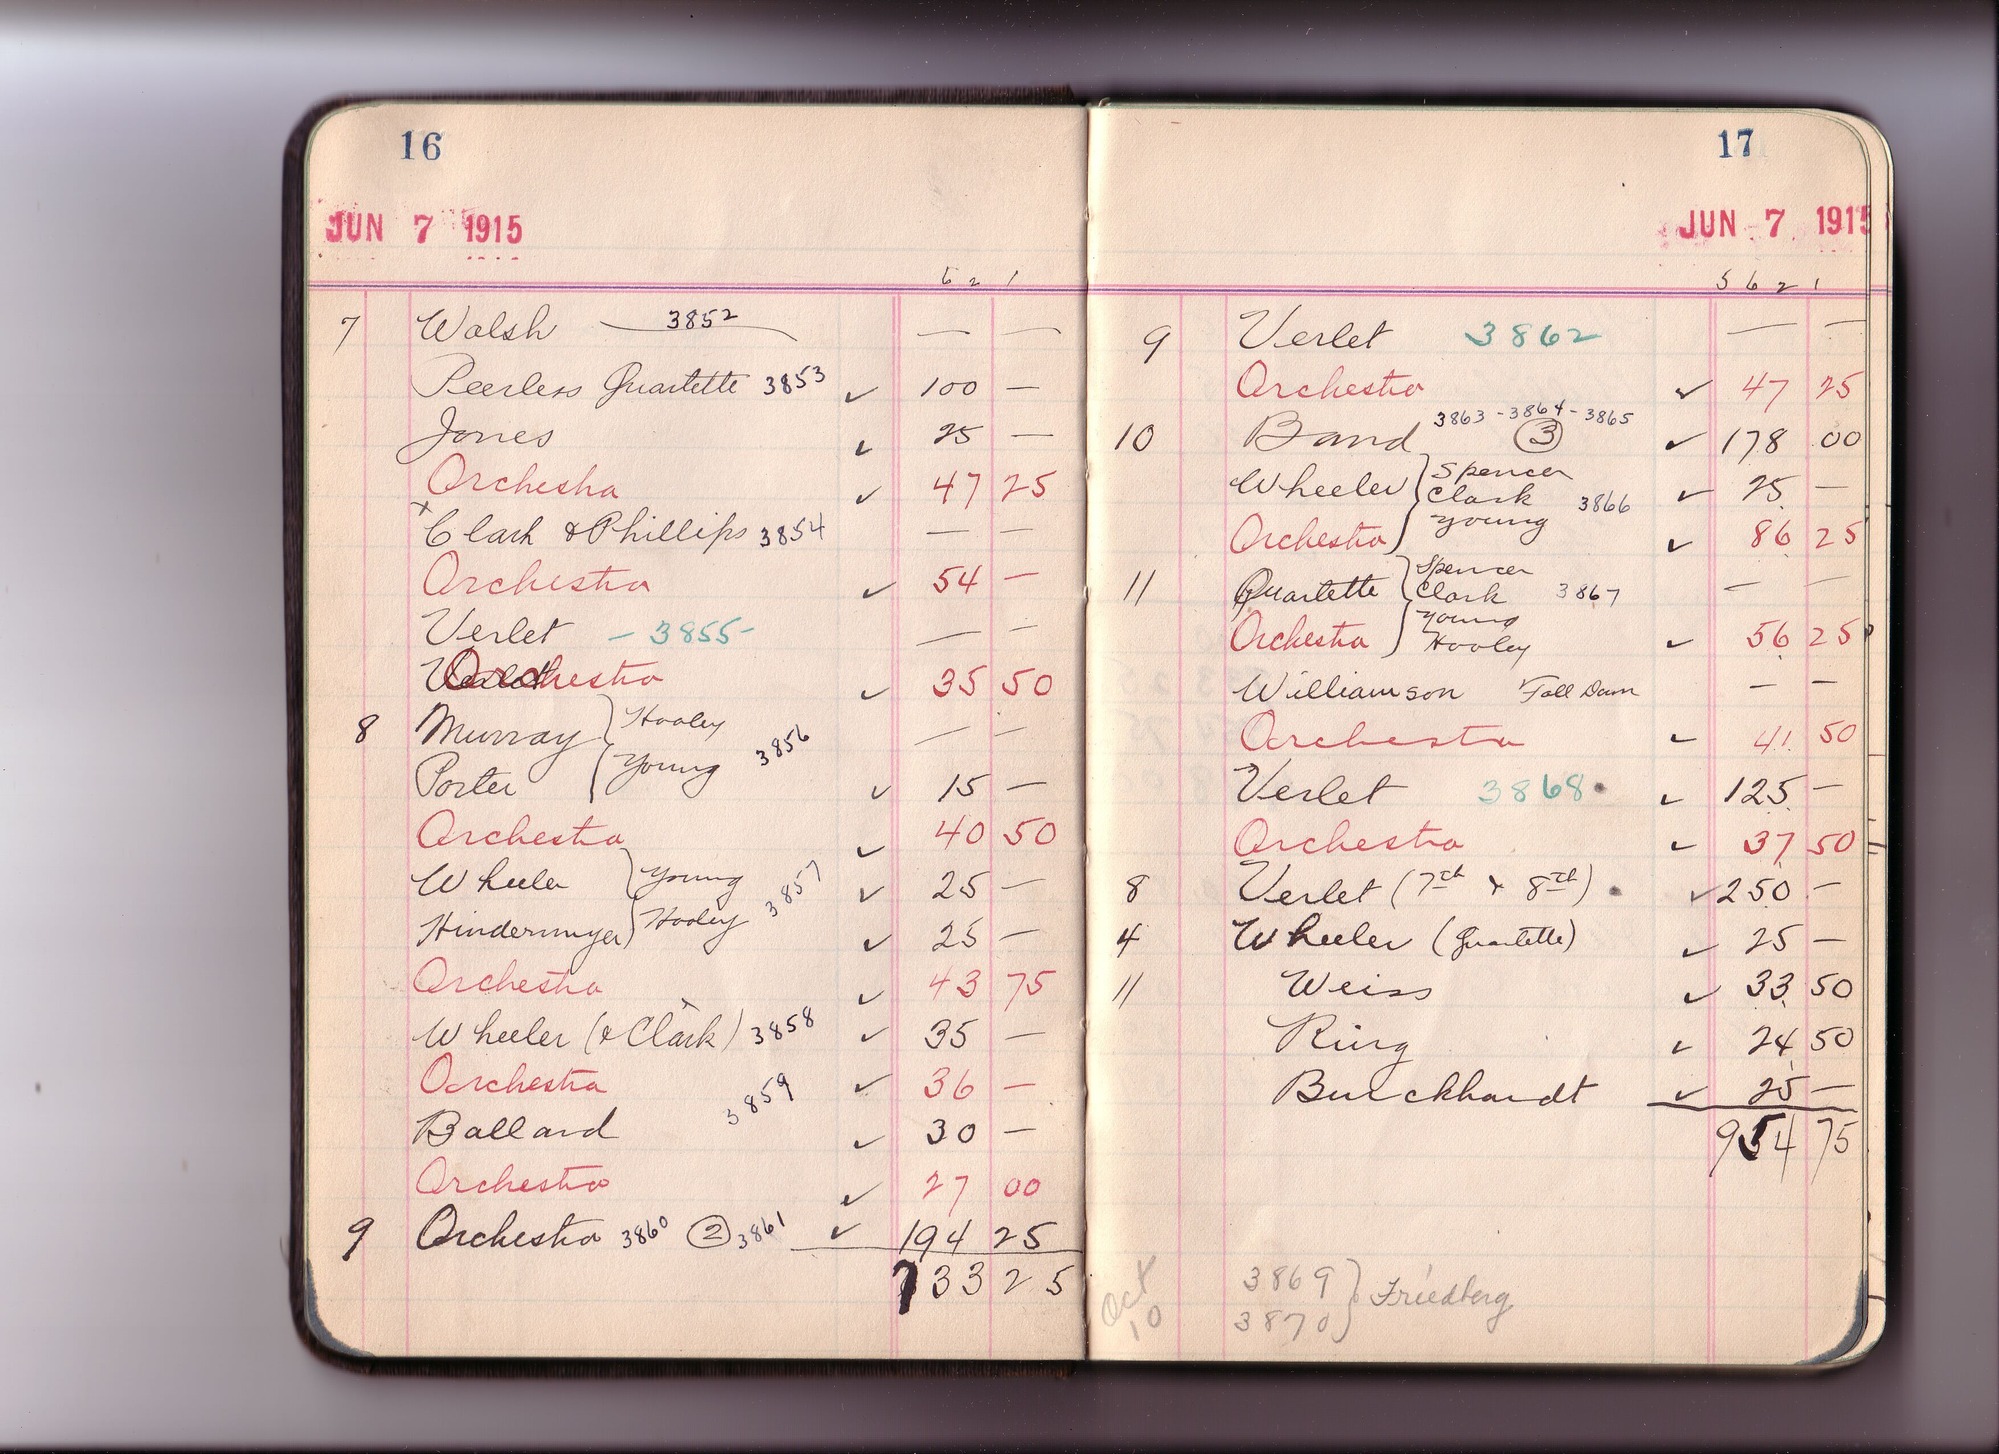 16
JUN 7 1915
6 2 1
7 Walsh 3852 — —
Peerless Quartette 3853 ✓ 100 —
Jones ✓ 25 —
Orchestra ✓ 47 25
x Clark & Phillips 3854 — —
Orchestra ✓ 54 —
Verlet — 3855 — — —
Orchestra ✓ 35 50
8 Murray } Hooley — —
Porter { Young 3856 ✓ 15 —
Orchestra ✓ 40 50
Wheeler } Young ✓ 25 —
Hindermyer } Hooley 3857 ✓ 25 —
Orchestra ✓ 43 75
Wheeler (& Clark) x 3858 ✓ 35 —
Orchestra ✓ 36 —
Ballard 3859 ✓ 30 —
Orchestra ✓ 27 00
9 Orchestra 3860 (2) 3861 ✓ 194 25
733 25
17
JUN 7 1915
5 6 2 1
9 Verlet 3862 — —
Orchestra ✓ 47 25
3863 - 3864 - 3865
10 Band (3) ✓ 178 00
Wheeler } Spencer ✓ 25 —
Clark 3866
Orchestra } Young ✓ 86 25
Spencer
11 Quartette } Clark 3867 — —
Young
Orchestra } Hooley ✓ 56 25
Williamson Fall Down — —
Orchestra ✓ 41 50
Verlet 3868 • ✓ 125 —
Orchestra ✓ 37 50
8 Verlet (7th & 8th) • ✓ 250 —
4 Wheeler (Quartette) ✓ 25 —
11 Weiss ✓ 33 50
Ring ✓ 24 50
Burckhardt ✓ 25 —
954 75
Oct 10 3869 } Friedberg
3870